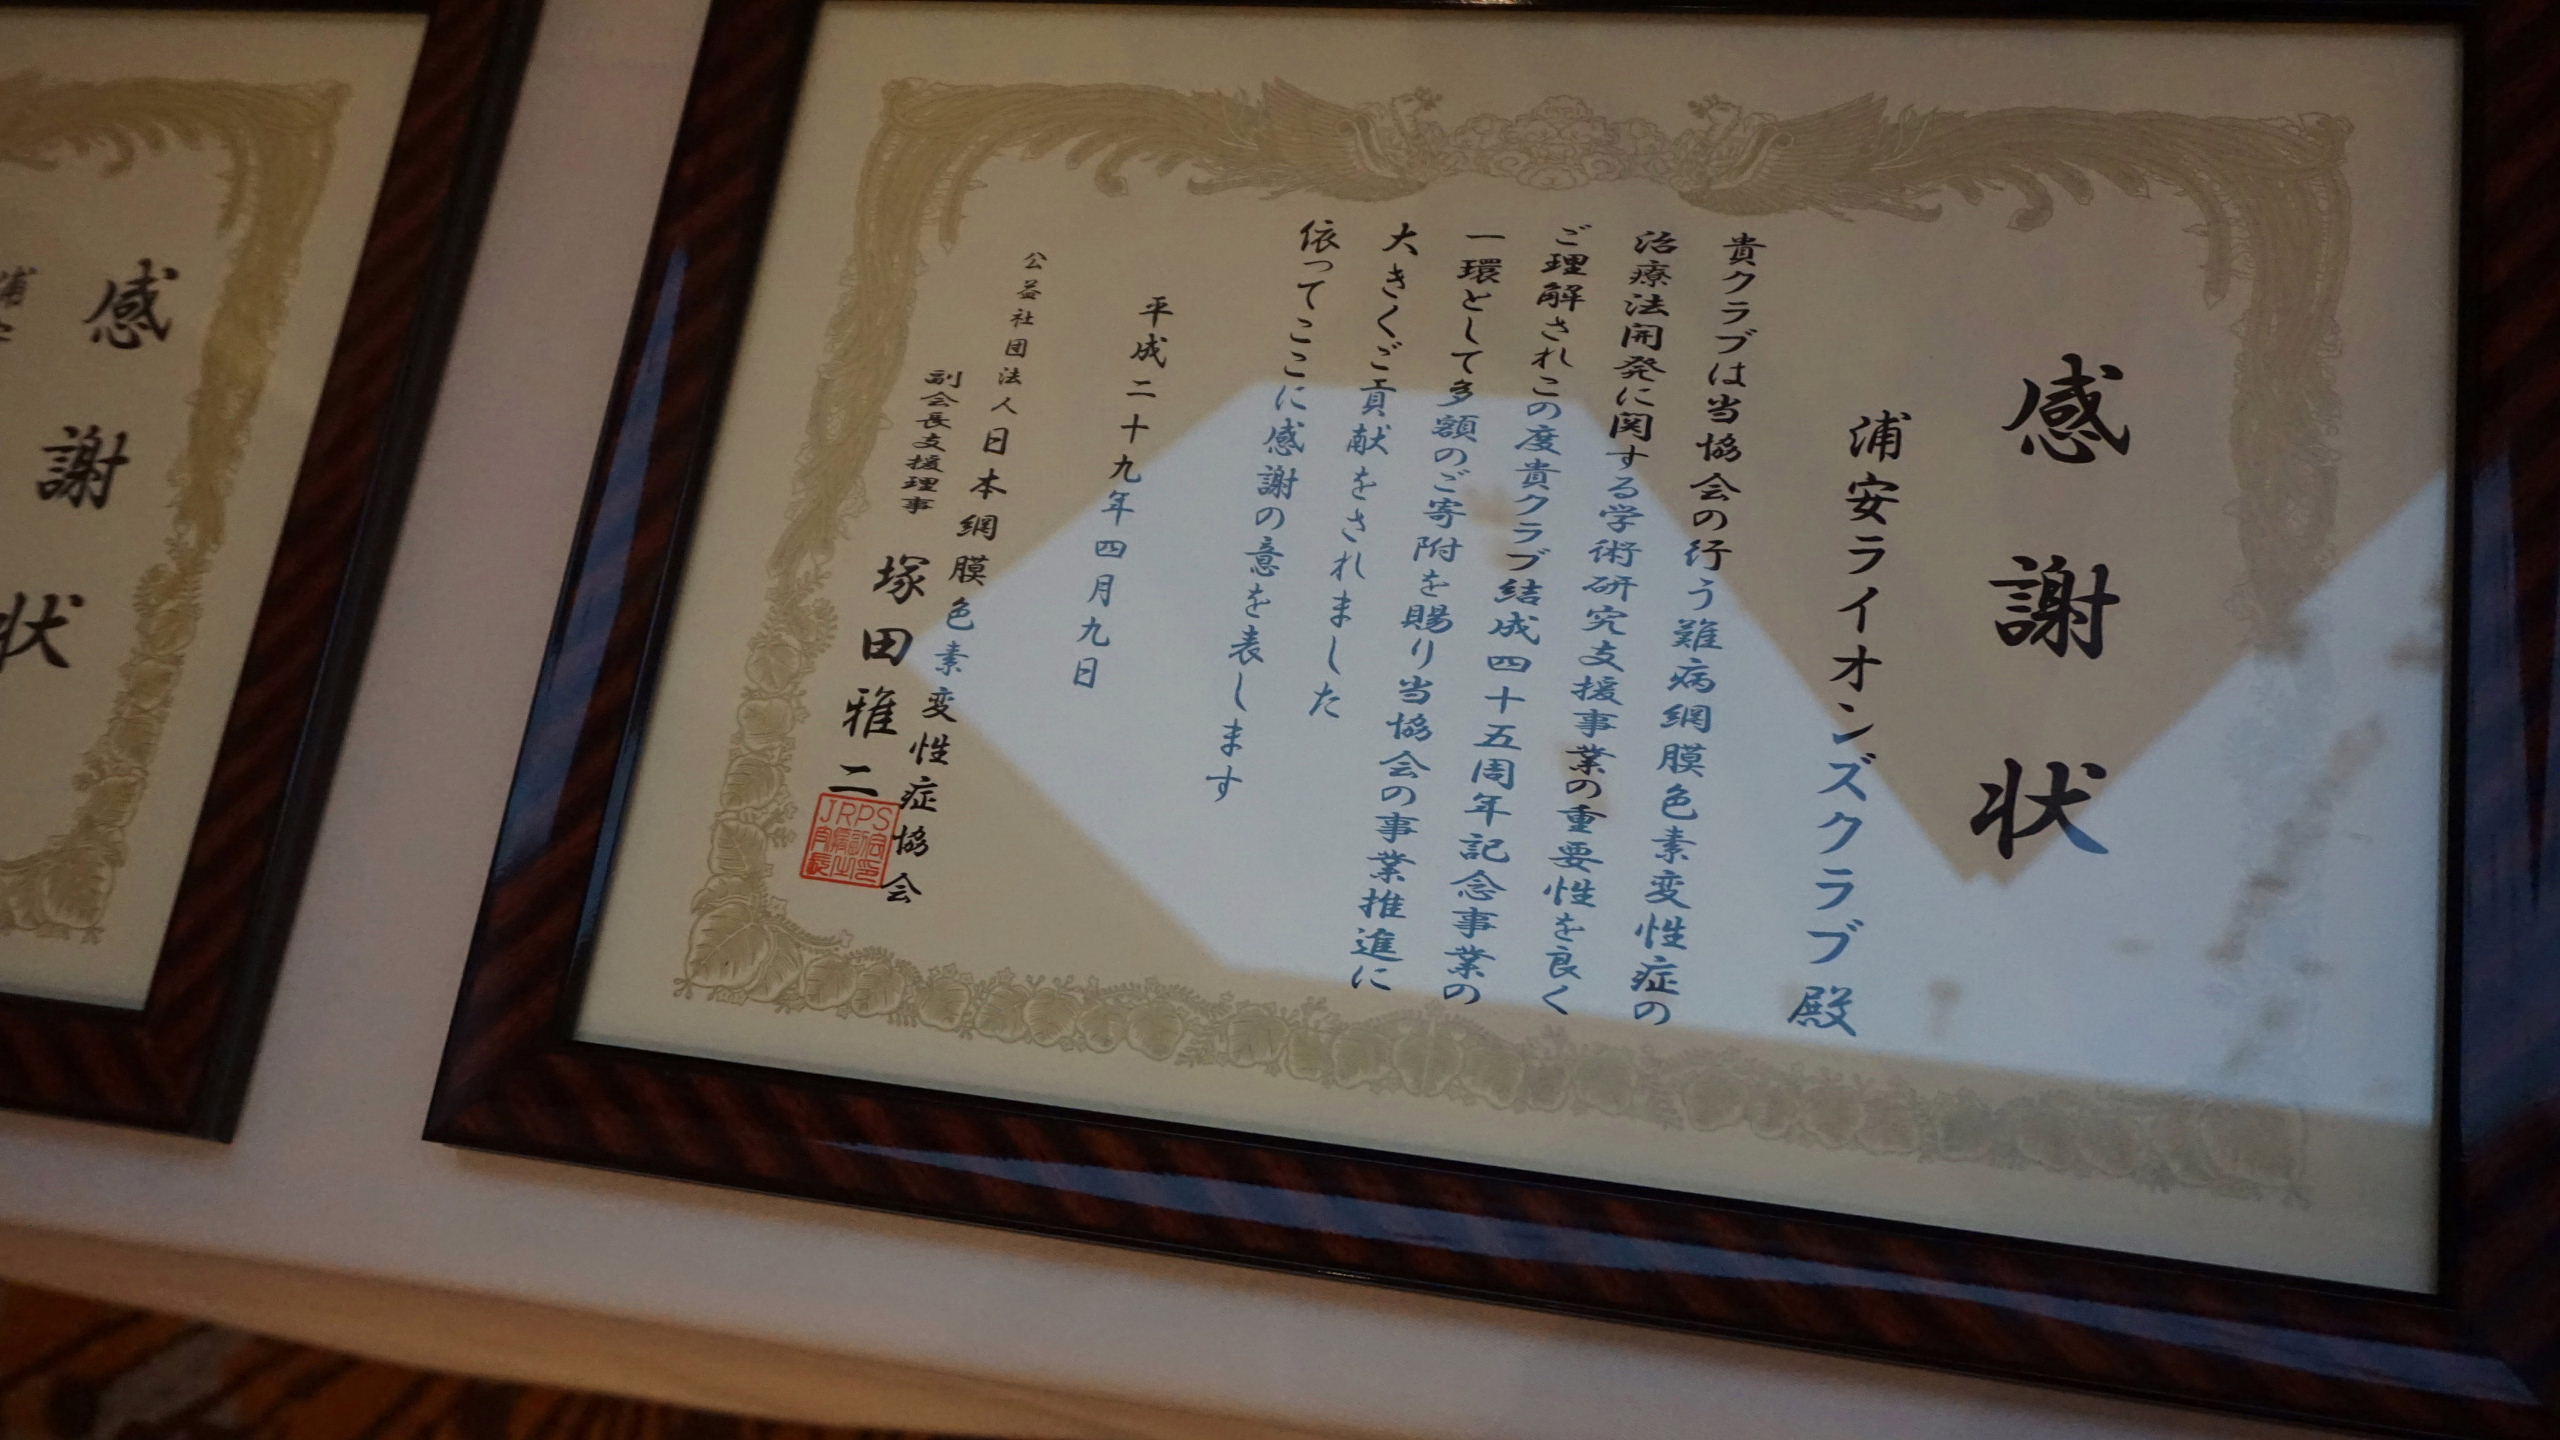 感謝状
浦安ライオンズクラブ殿
貴クラブは当協会の行う難病網膜色素変性症の
治療法開発に関する学術研究支援事業の重要性を良く
ご理解されこの度貴クラブ結成四十五周年記念事業の
一環として多額のご寄附を賜り当協会の事業推進に
大きくご貢献をされました
依ってここに感謝の意を表します
平成二十九年四月九日
公益社団法人日本網膜色素変性症協会
副会長支援理事 塚田雅二
JRPS
感謝状
浦